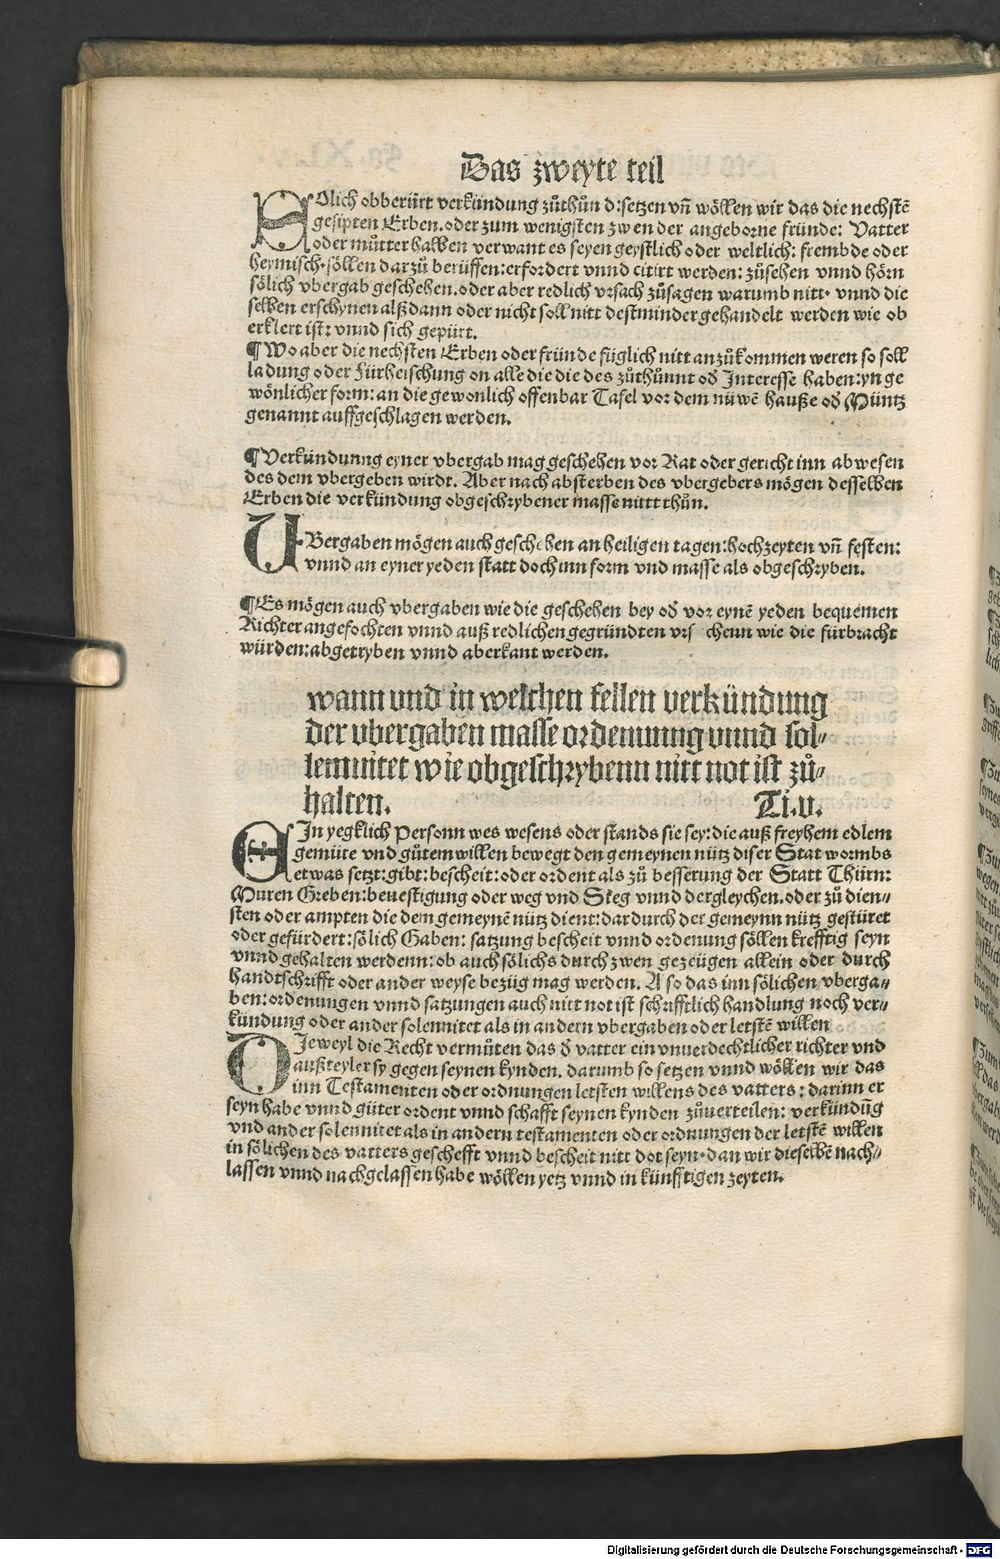 Das zweyte teil
SOlich obberürt verkündung zůthůn d:setzen vñ wöllen wir das die nechstẽ
gesipten Erben.oder zum wenigsten zwen der angeborne fründe: Vatter
oder můtter halben verwant es seyen geystlich oder weltlich: frembde oder
heymisch·söllen darzů berüffen:erfordert vnnd citirt werden: zůsehen vnnd hörn
sölich vbergab geschehen.oder aber redlich vrsach zůsagen warumb nitt· vnnd die
selben erschynen alßdann oder nicht soll nitt destminder gehandelt werden wie ob
erklert ist: vnnd sich gepürt.
¶Wo aber die nechsten Erben oder fründe füglich nitt anzůkommen weren so soll
ladung oder Fürheischung on alle die die des zůthůnnt od̕ Interesse haben:yn ge
wönlicher form:an die gewonlich offenbar Tafel vor dem nüwẽ hauße od̕ Müntz
genannt auffgeschlagen werden.
¶Verkündunng eyner vbergab mag geschehen vor Rat oder gericht inn abwesen
des dem vbergeben wirdt. Aber nach absterben des vbergebers mögen desselben
Erben die verkündung obgeschrybener masse nittt thůn.
VBergaben mögen auch geschehen an heiligen tagen:hochzeyten vñ festen:
vnnd an eyner yeden statt doch inn form vnd masse als obgeschryben.
¶Es mögen auch vbergaben wie die geschehen bey od̕ vor eynẽ yeden bequemen
Richter angefochten vnnd auß redlichen gegründten vrs chenn wie die fürbracht
würden:abgetryben vnnd aberkant werden.
wann vnd in welchen fellen verkündung
der vbergaben masse ordenunng vnnd sol⸗
lemnitet wie obgeschrybenn nitt not ist zů⸗
halten. Ti.v.
EIn yegklich Personn wes wesens oder stands sie sey:die auß freyhem edlem
gemüte vnd gůtem willen bewegt den gemeynen nütz diser Stat wormbs
etwas setzt:gibt:bescheit:oder ordent als zů besserung der Statt Thürn:
Muren Greben:beuestigung oder weg vnd Steg vnnd dergleychen.oder zů dien⸗
sten oder ampten die dem gemeynẽ nütz dient:dardurch der gemeynn nütz gestüret
oder gefürdert:sölich Gaben: satzung bescheit vnnd ordenung söllen krefftig seyn
vnnd gehalten werdenn:ob auch sölichs durch zwen gezeügen allein oder durch
handtschrifft oder ander weyse bezüg mag werden. Also das inn sölichen vberga⸗
ben:ordenungen vnnd satzungen auch nitt not ist schrifftlich handlung noch ver⸗
kündung oder ander solennitet als in andern vbergaben oder letstẽ willen
DIeweyl die Recht vermůten das d̕ vatter ein vnuerdechtlicher richter vnd
außteyler sy gegen seynen kynden. darumb so setzen vnnd wöllen wir das
inn Testamenten oder ordnungen letsten willens des vatters: darinn er
seyn habe vnnd güter ordent vnnd schafft seynen kynden zůuerteilen: verkündũg
vnd ander solennitet als in andern testamenten oder ordnungen der letstẽ willen
in sölichen des vatters geschefft vnnd bescheit nitt dot seyn·dan wir dieselbẽ nach⸗
lassen vnnd nachgelassen habe wöllen yetz vnnd in künfftigen zeyten.
Digitalisierung gefördert durch die Deutsche Forschungsgemeinschaft - DFG